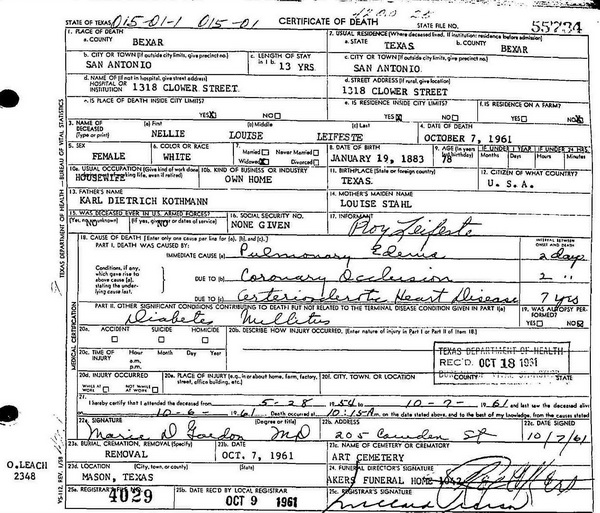 STATE OF TEXAS 015-01-1 015-01 CERTIFICATE OF DEATH STATE FILE NO. 55734
1. PLACE OF DEATH
a. COUNTY BEXAR
2. USUAL RESIDENCE (Where deceased lived. If institution: residence before admission)
a. STATE TEXAS b. COUNTY BEXAR
b. CITY OR TOWN (If outside city limits, give precinct no.) SAN ANTONIO
c. LENGTH OF STAY in 1 b. 13 YRS
c. CITY OR TOWN (If outside city limits, give precinct no.) SAN ANTONIO
d. NAME OF (If not in hospital, give street address) HOSPITAL OR INSTITUTION 1318 CLOWER STREET.
d. STREET ADDRESS (If rural, give location) 1318 CLOWER STREET
e. IS PLACE OF DEATH INSIDE CITY LIMITS? YES NO
e. IS RESIDENCE INSIDE CITY LIMITS? YES NO
f. IS RESIDENCE ON A FARM? YES NO
3. NAME OF DECEASED (Type or print) (a) First NELLIE (b) Middle LOUISE (c) Last LEIFESTE
4. DATE OF DEATH OCTOBER 7, 1961
5. SEX FEMALE
6. COLOR OR RACE WHITE
7. Married Never Married Widowed Divorced
8. DATE OF BIRTH JANUARY 19, 1883
9. AGE (In years 78
IF UNDER 1 YEAR Months Days
IF UNDER 24 HRS. Hours Minutes
10a. USUAL OCCUPATION (Give kind of work done HOUSEWIFE life, even if retired)
10b. KIND OF BUSINESS OR INDUSTRY OWN HOME
11. BIRTHPLACE (State or foreign country) TEXAS
12. CITIZEN OF WHAT COUNTRY? U. S. A.
13. FATHER'S NAME KARL DIETRICH KOTHMANN
14. MOTHER'S MAIDEN NAME LOUISE STAHL
15. WAS DECEASED EVER IN U.S. ARMED FORCES? (Yes, no) NO (If yes, give war or dates of service) NO
16. SOCIAL SECURITY NO. NONE GIVEN
17. INFORMANT Roy Leifeste
18. CAUSE OF DEATH [Enter only one cause per line for (a), (b), and (c).]
INTERVAL BETWEEN ONSET AND DEATH
PART I. DEATH WAS CAUSED BY:
IMMEDIATE CAUSE (a) Pulmonary Edema 2 days
Conditions, if any, which gave rise to above cause (a), stating the underlying cause last.
DUE TO (b) Coronary Occlusion 2 "
DUE TO (c) Arteriosclerotic Heart Disease 7 yrs
PART II. OTHER SIGNIFICANT CONDITIONS CONTRIBUTING TO DEATH BUT NOT RELATED TO THE TERMINAL DISEASE CONDITION GIVEN IN PART I(a)
Diabetes Mellitus
19. WAS AUTOPSY PERFORMED? YES NO
20a. ACCIDENT SUICIDE HOMICIDE
20b. DESCRIBE HOW INJURY OCCURRED. (Enter nature of injury in Part I or Part II of Item 18.)
20c. TIME OF INJURY Hour Month Day Year a.m. p.m.
TEXAS DEPARTMENT OF HEALTH
REC'D. OCT 18 1961
20d. INJURY OCCURRED WHILE AT WORK NOT WHILE AT WORK
20e. PLACE OF INJURY (e.g. in or about home, farm, factory, street, office building, etc.)
20f. CITY, TOWN, OR LOCATION COUNTY STATE
21. I hereby certify that I attended the deceased from 5-28 1954 to 10-7- 1961 and last saw the deceased alive
10-6- 1961 Death occurred at 10:15 A m. on the date stated above, and to the best of my knowledge, from the causes stated
22a. SIGNATURE (Degree or title) Marie D Gordon MD
22b. ADDRESS 205 Camden St
22c. DATE SIGNED 10/7/61
23a. BURIAL, CREMATION, REMOVAL (Specify) REMOVAL
23b. DATE OCT. 7, 1961
23c. NAME OF CEMETERY OR CREMATORY ART CEMETERY
23d. LOCATION (City, town, or county) (State) MASON, TEXAS
24. FUNERAL DIRECTOR'S SIGNATURE AKERS FUNERAL HOME 1042
25a. REGISTRAR'S FILE NO. 4029
25b. DATE REC'D BY LOCAL REGISTRAR OCT 9 1961
25c. REGISTRAR'S SIGNATURE
TEXAS DEPARTMENT OF HEALTH — BUREAU OF VITAL STATISTICS
MEDICAL CERTIFICATION
O.LEACH
2348